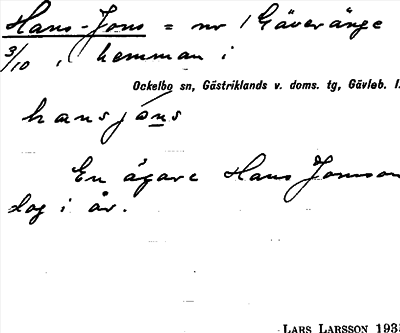 Hans-Jons = nr 1 Gäveränge
3/10, hemman i
Ockelbo sn, Gästriklands v. doms. tg, Gävleb. l.
hansjo̱ns
En ägare Hans Jonsson
dog i år.
LARS LARSSON 193